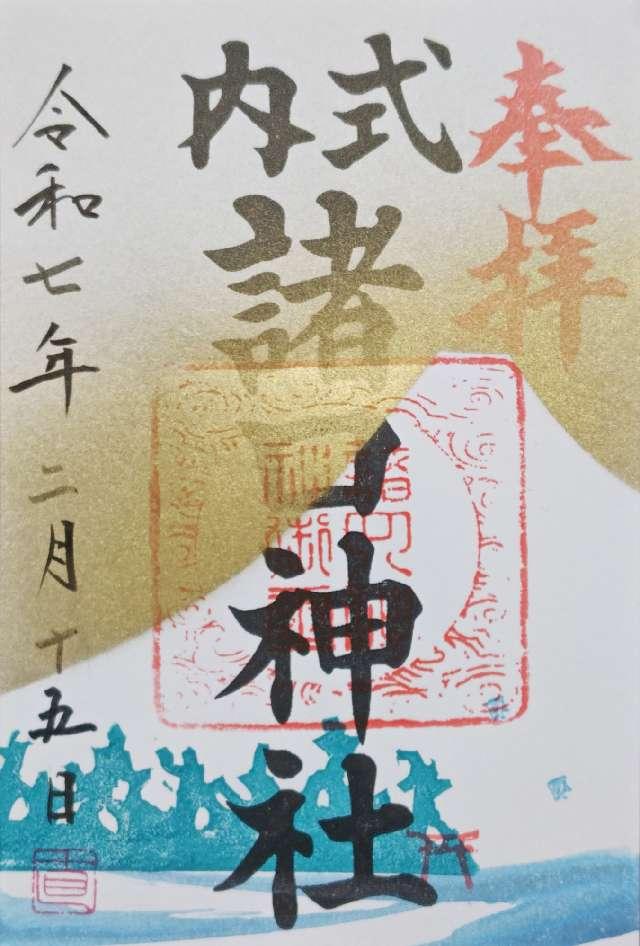 奉拝
式内
諸口神社
令和七年二月十五日